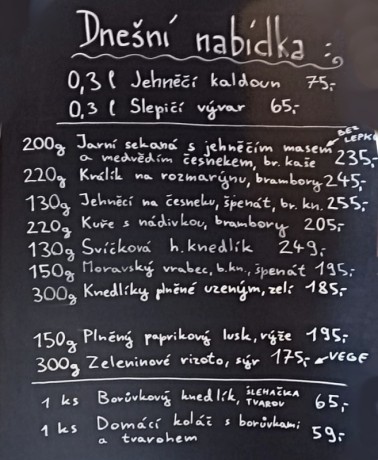 Dnešní nabídka
0,3 l Jehněčí kaldoun 75,-
0,3 l Slepičí vývar 65,-
BEZ LEPKU
200g Jarní sekaná s jehněčím masem
a medvědím česnekem, br. kaše 235,-
220g Králík na rozmarýnu, brambory 245,-
130g Jehněčí na česneku, špenát, br. kn. 255,-
220g Kuře s nádivkou, brambory 205,-
130g Svíčková h. knedlík 249,-
150g Moravský vrabec, b.kn., špenát 195,-
300g Knedlíky plněné uzeným, zelí 185,-
150g Plněný paprikový lusk, rýže 195,-
300g Zeleninové rizoto, sýr 175,- VEGE
1 ks Borůvkový knedlík, ŠLEHAČKA TVAROH 65,-
1 ks Domácí koláč s borůvkami
a tvarohem 59,-